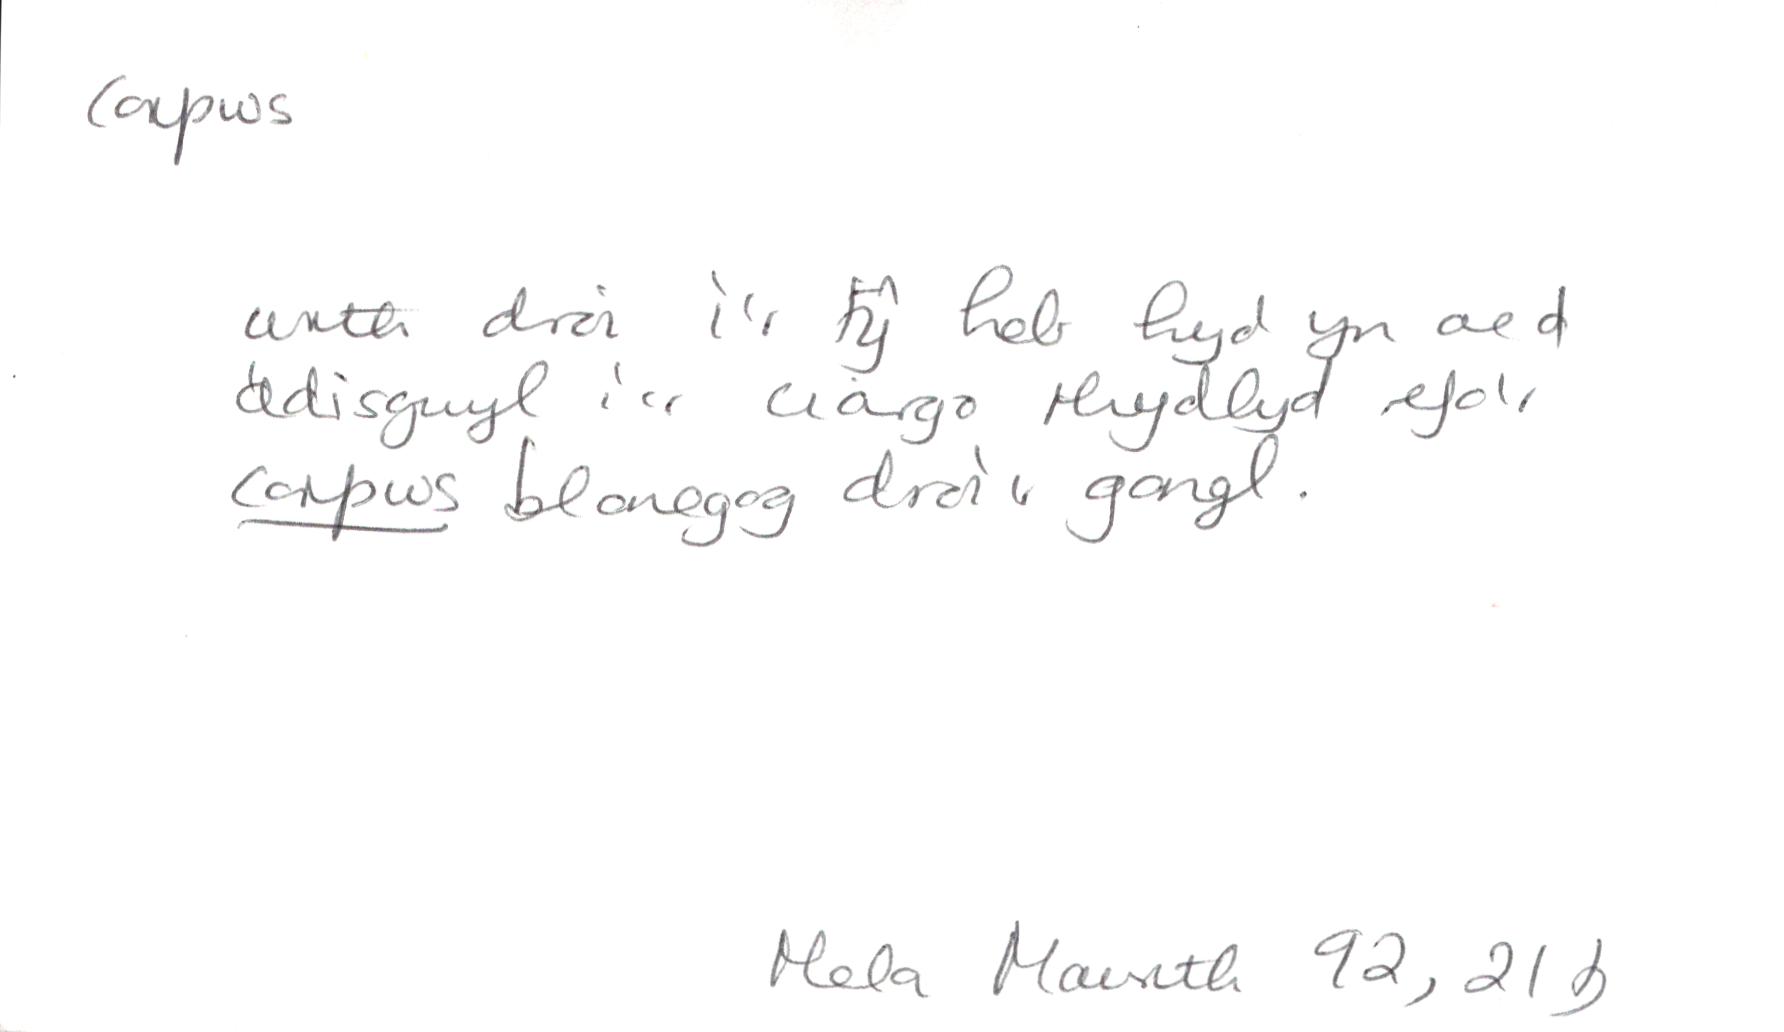 corpws
wrth droi i'r tŷ heb hyd yn oed
ddisgwyl i'r cargo rhydlyd efo'r
corpws blonegog droi'r gongl.
Mela Mawrth 92, 21b